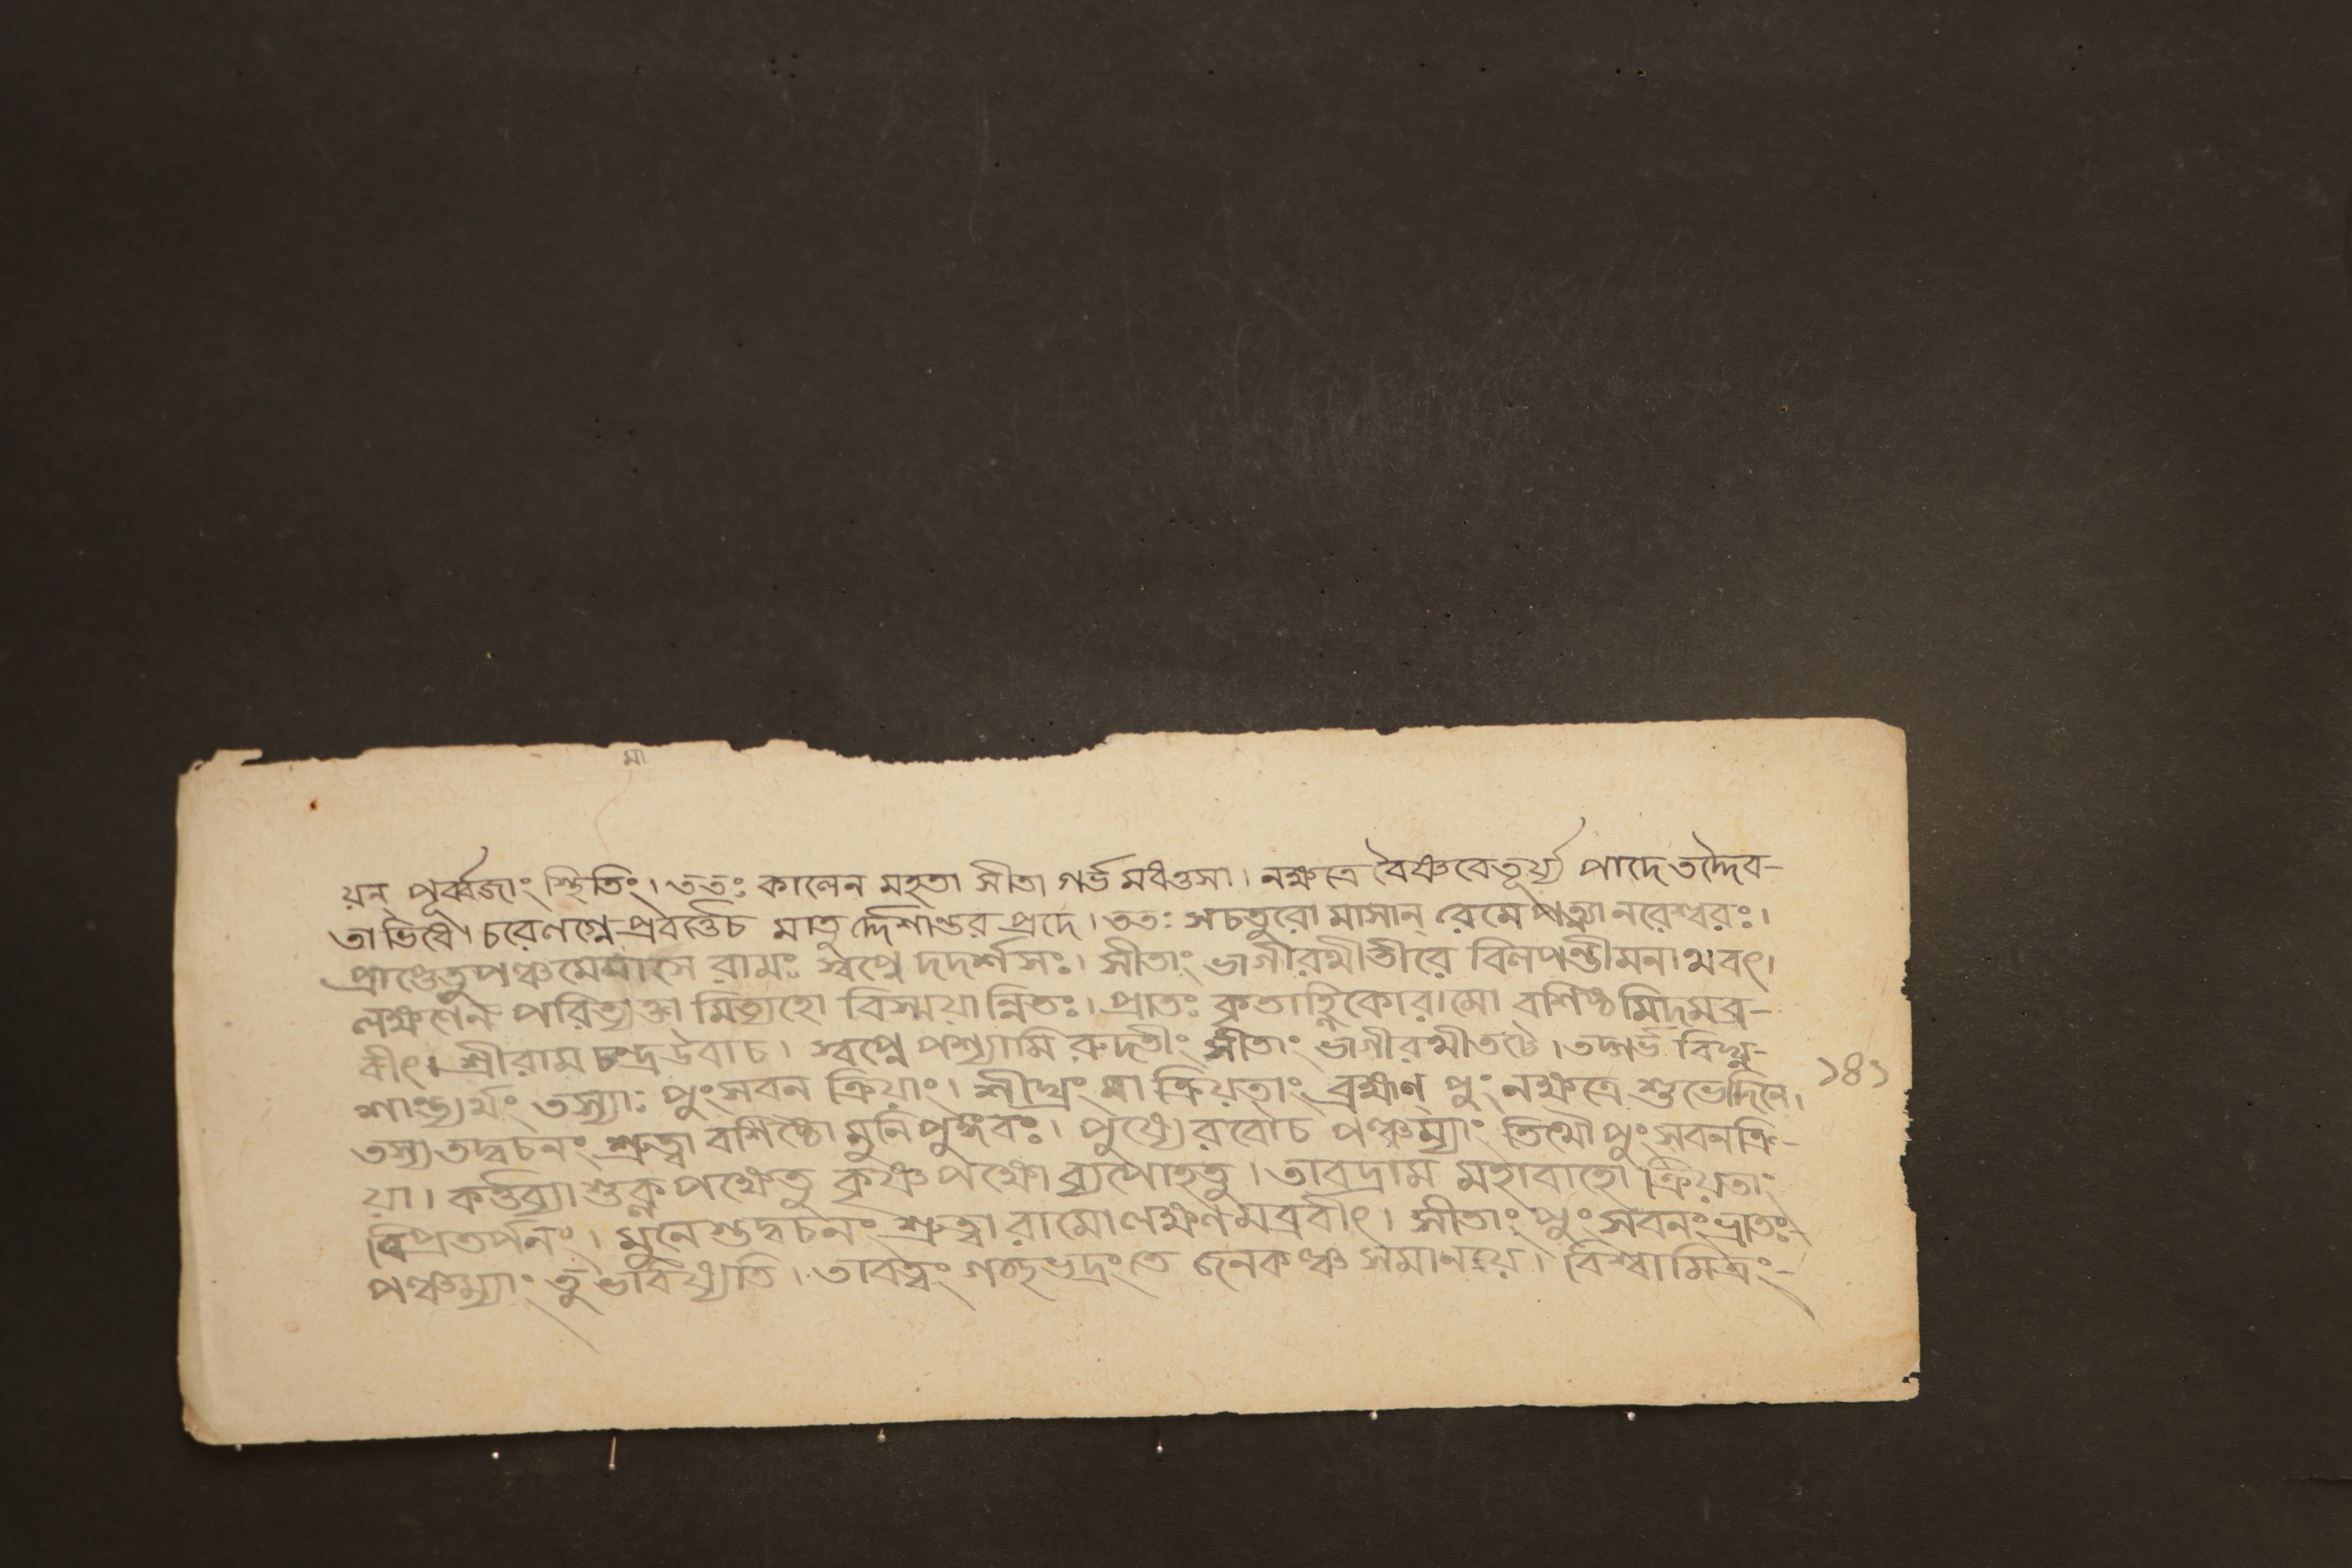 মা
য়ন্ পূর্ব্বজাং স্থিতিং। ততঃ কালেন মহতা সীতা গর্ভমধত্তসা। নক্ষত্রে বৈষ্ণবেতূর্য্য পাদে তদ্দৈব-
তাভিধে। চরেণগ্নে প্রবর্ত্তেচ মাতু র্দ্দেশান্তর প্রদে। ততঃ সচতুরো মাসান্ রেমে পত্ন্যা নরেশ্বরঃ।
প্রাপ্তেতু পঞ্চমেমাসে রামঃ স্বপ্নে দদর্শসঃ। সীতাং ভাগীরথীতীরে বিলপন্তীমনাথবৎ।
লক্ষ্মণেন পরিত্যক্তা মিত্যহো বিস্ময়ান্নিতঃ। প্রাতঃ কৃতাহ্নিকোরামো বশিষ্ঠমিদমব্র-
বীৎ। শ্রীরামচন্দ্রউবাচ। স্বপ্নে পশ্যামি রুদতীং সীতাং ভাগীরথীতটে। তদ্গর্ভ বিঘ্ন-
শান্ত্যর্থং তস্যাঃ পুংসবন ক্রিয়াং। শীঘ্রং বা ক্রিয়তাং ব্রহ্মণ্ পুং নক্ষত্রে শুভেদিনে।
১৪১
তস্য তদ্বচনং শ্রুত্বা বশিষ্ঠো মুনিপুঙ্গবঃ। পুষ্যে রবৌচ পঞ্চম্যাং তিথৌ পুংসবনক্রি-
য়া। কর্ত্তব্যা শুক্লপক্ষেতু কৃষ্ণপক্ষো ব্যপোহতু। তাবদ্রাম মহাবাহো ক্রিয়তাং
বিপ্রতর্পনং। মুনেস্তদ্বচনং শ্রুত্বা রামো লক্ষ্মণমব্রবীৎ। সীতাং পুংসবনং ভ্রাতঃ-
পঞ্চম্যাং তু ভবিষ্যতি। তাবত্ত্বং গচ্ছভদ্রংতে জনকঞ্চ সমানয়। বিশ্বামিত্রং-